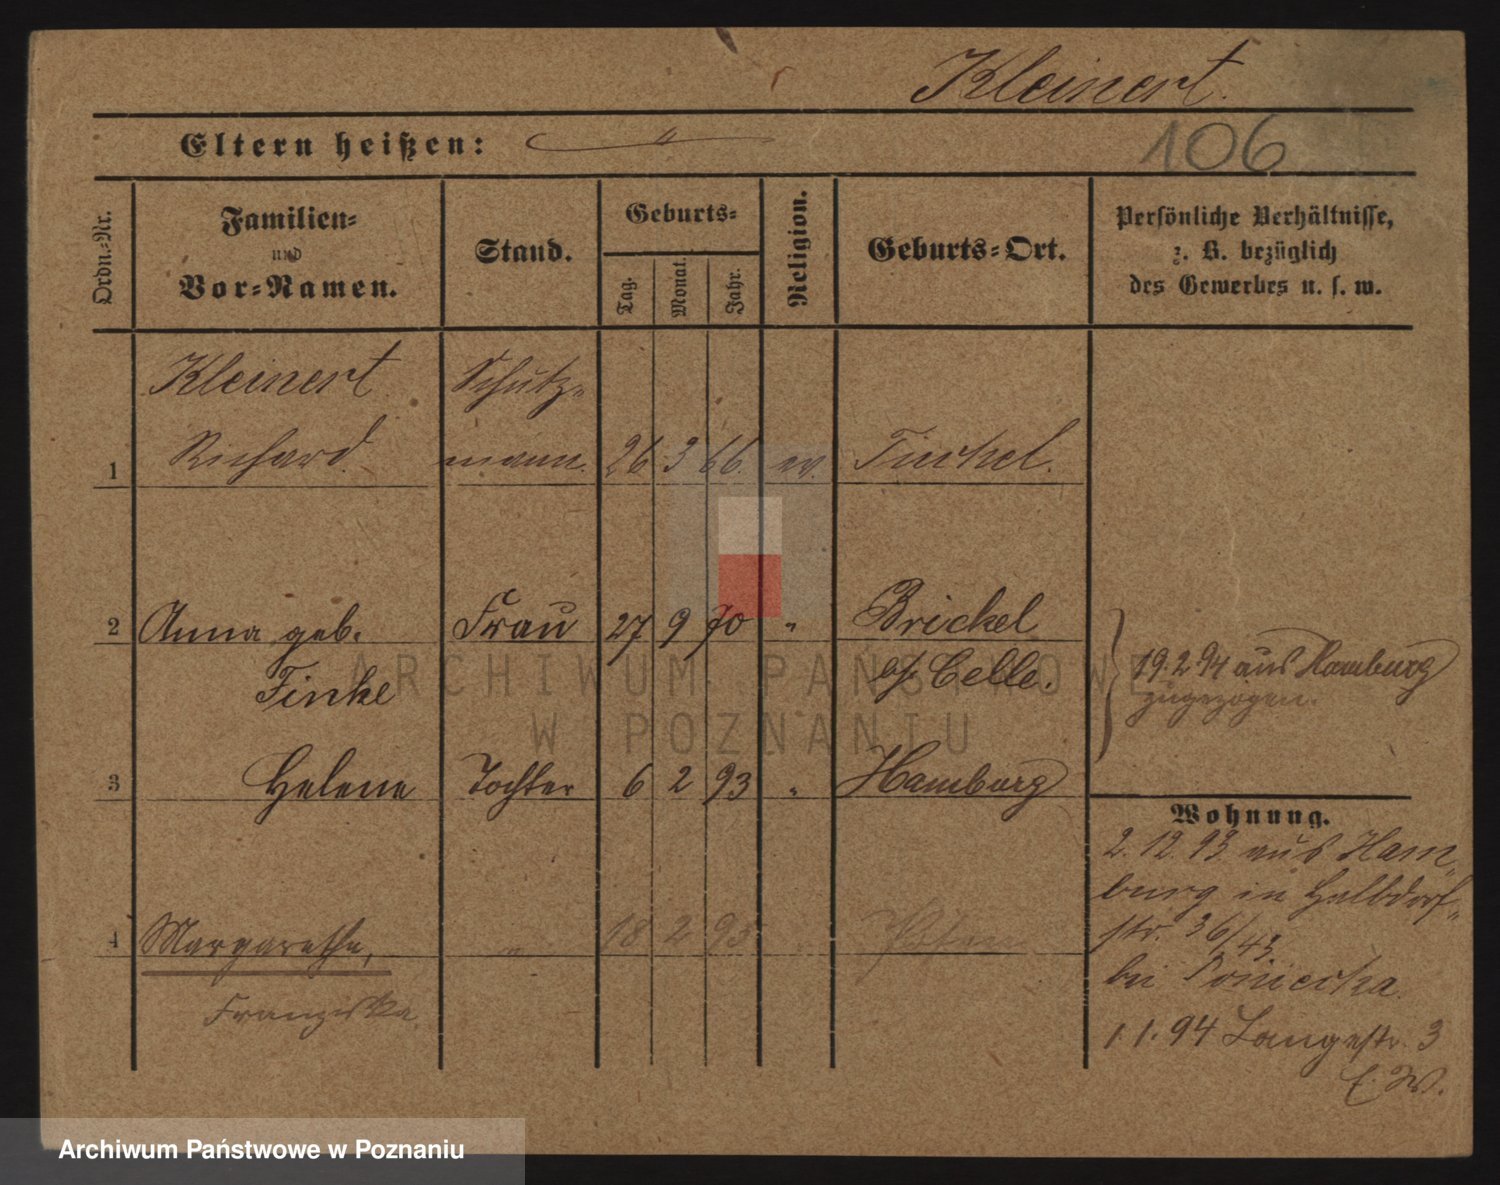 Kleinert.
Eltern heißen: "
106
Ordn.-Nr.
Familien-
und
Vor-Namen.
Stand.
Geburts-
Tag.
Monat.
Jahr.
Religion.
Geburts-Ort.
Persönliche Verhältnisse,
z. B. bezüglich
des Gewerbes u. s. w.
Kleinert Schutz-
1 Richard mann. 26 3 66. ev.
2 Anna geb. Frau 27 9 70 " Brickel
Finke b/ Celle.
19.2.94 aus Hamburg
zugezogen.
3 Helene Tochter 6 2 93 " Hamburg
Wohnung.
2. 12. 93 aus Ham-
burg in Halbdorf-
str. 36/43
bei
4 Margarethe, " 18 2 95
Franziska
1. 1. 94 Langestr. 3
ARCHIWUM PAŃSTWOWE
W POZNANIU
Archiwum Państwowe w Poznaniu